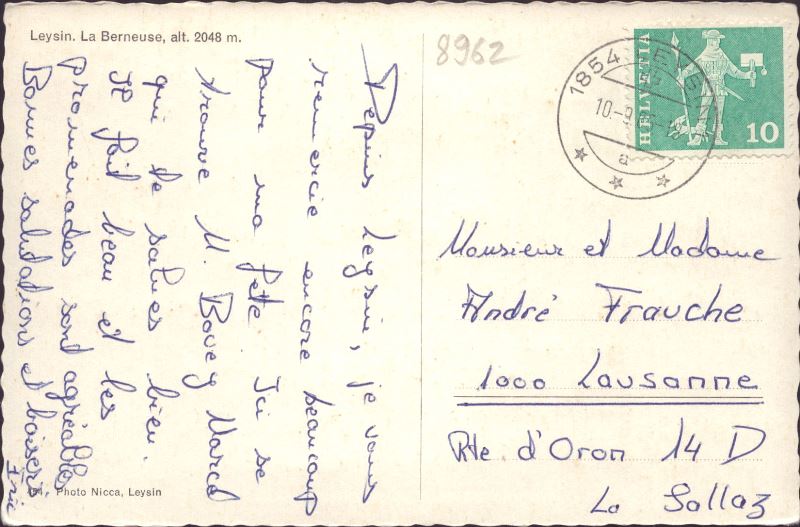 Leysin. La Berneuse, alt. 2048 m.
8962
1854 LEYSIN
10.-9.
a
HELVETIA
10
Depuis Leysin, je vous
remercie encore beaucoup
pour ma fête Ici se
trouve M. Bovey Marcel
qui te salues bien.
Il fait beau et les
promenades sont agréables
Bonnes salutations et baisers.
Monsieur et Madame
André Frauche
1000 Lausanne
Rte d'Oron 14 D
La Sallaz
Photo Nicca, Leysin